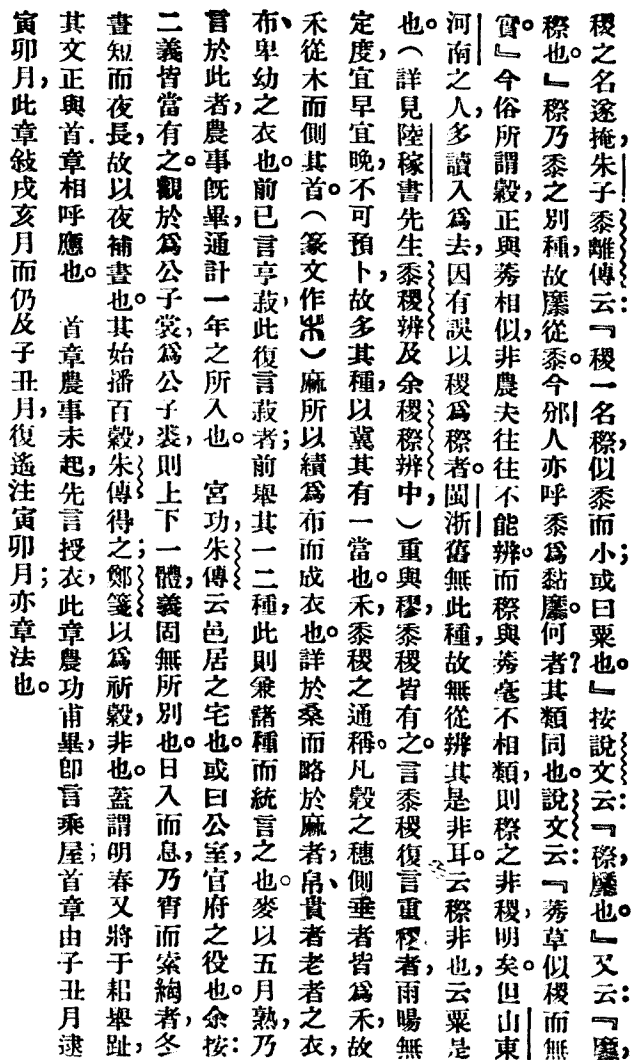 稷之名遂掩，朱子黍離傳云：『稷一名穄，似黍而小；或曰粟也。』按說文云：『穄，䵖也。』又云：『䵖，
穄也。』穄乃黍之別種，故䵖從黍。今邠人亦呼黍爲黏䵖。何者？其類同也。說文云：『莠草似稷而無
實。』今俗所謂穀，正與莠相似，非農夫往往不能辨。而穄與莠毫不相類，則穄之非稷，明矣。但山東
河南之人，多讀入爲去，因有誤以稷爲穄者。閩浙舊無此種，故無從辨其是非耳。云穄非也，云粟是
也。（詳見陸稼書先生黍稷辨及余稷穄辨中，）重與穋，黍稷皆有之。言黍稷復言重穋者，雨暘無
定度，宜早宜晚，不可預卜，故多其種，以冀其有一當也。禾，黍稷之通稱。凡穀之穗側垂者皆爲禾，故
禾從木而側其首。（篆文作）麻所以績爲布而成衣也。詳於桑而略於麻者，帛、貴者老者之衣，
布、卑幼之衣也。前已言亨菽，此復言菽者；前舉其一二種，此則兼諸種而統言之也。麥以五月熟，乃
言於此者，農事旣畢，通計一年之所入也。　宮功，朱傳云邑居之宅也。或曰公室，官府之役也。余按：
二義皆當有之。觀於爲公子裳，爲公子裘，則上下一體，義固無所別也。日入而息，乃宵而索綯者，冬
晝短而夜長，故以夜補晝也。其始播百穀，朱傳得之；鄭箋以爲祈穀，非也。蓋謂明春又將于耜舉趾，
其文正與首章相呼應也。　首章農事未起，先言授衣，此章農功甫畢，卽言乘屋；首章由子丑月逮
寅卯月，此章敍戌亥月而仍及子丑月，復遙注寅卯月；亦章法也。